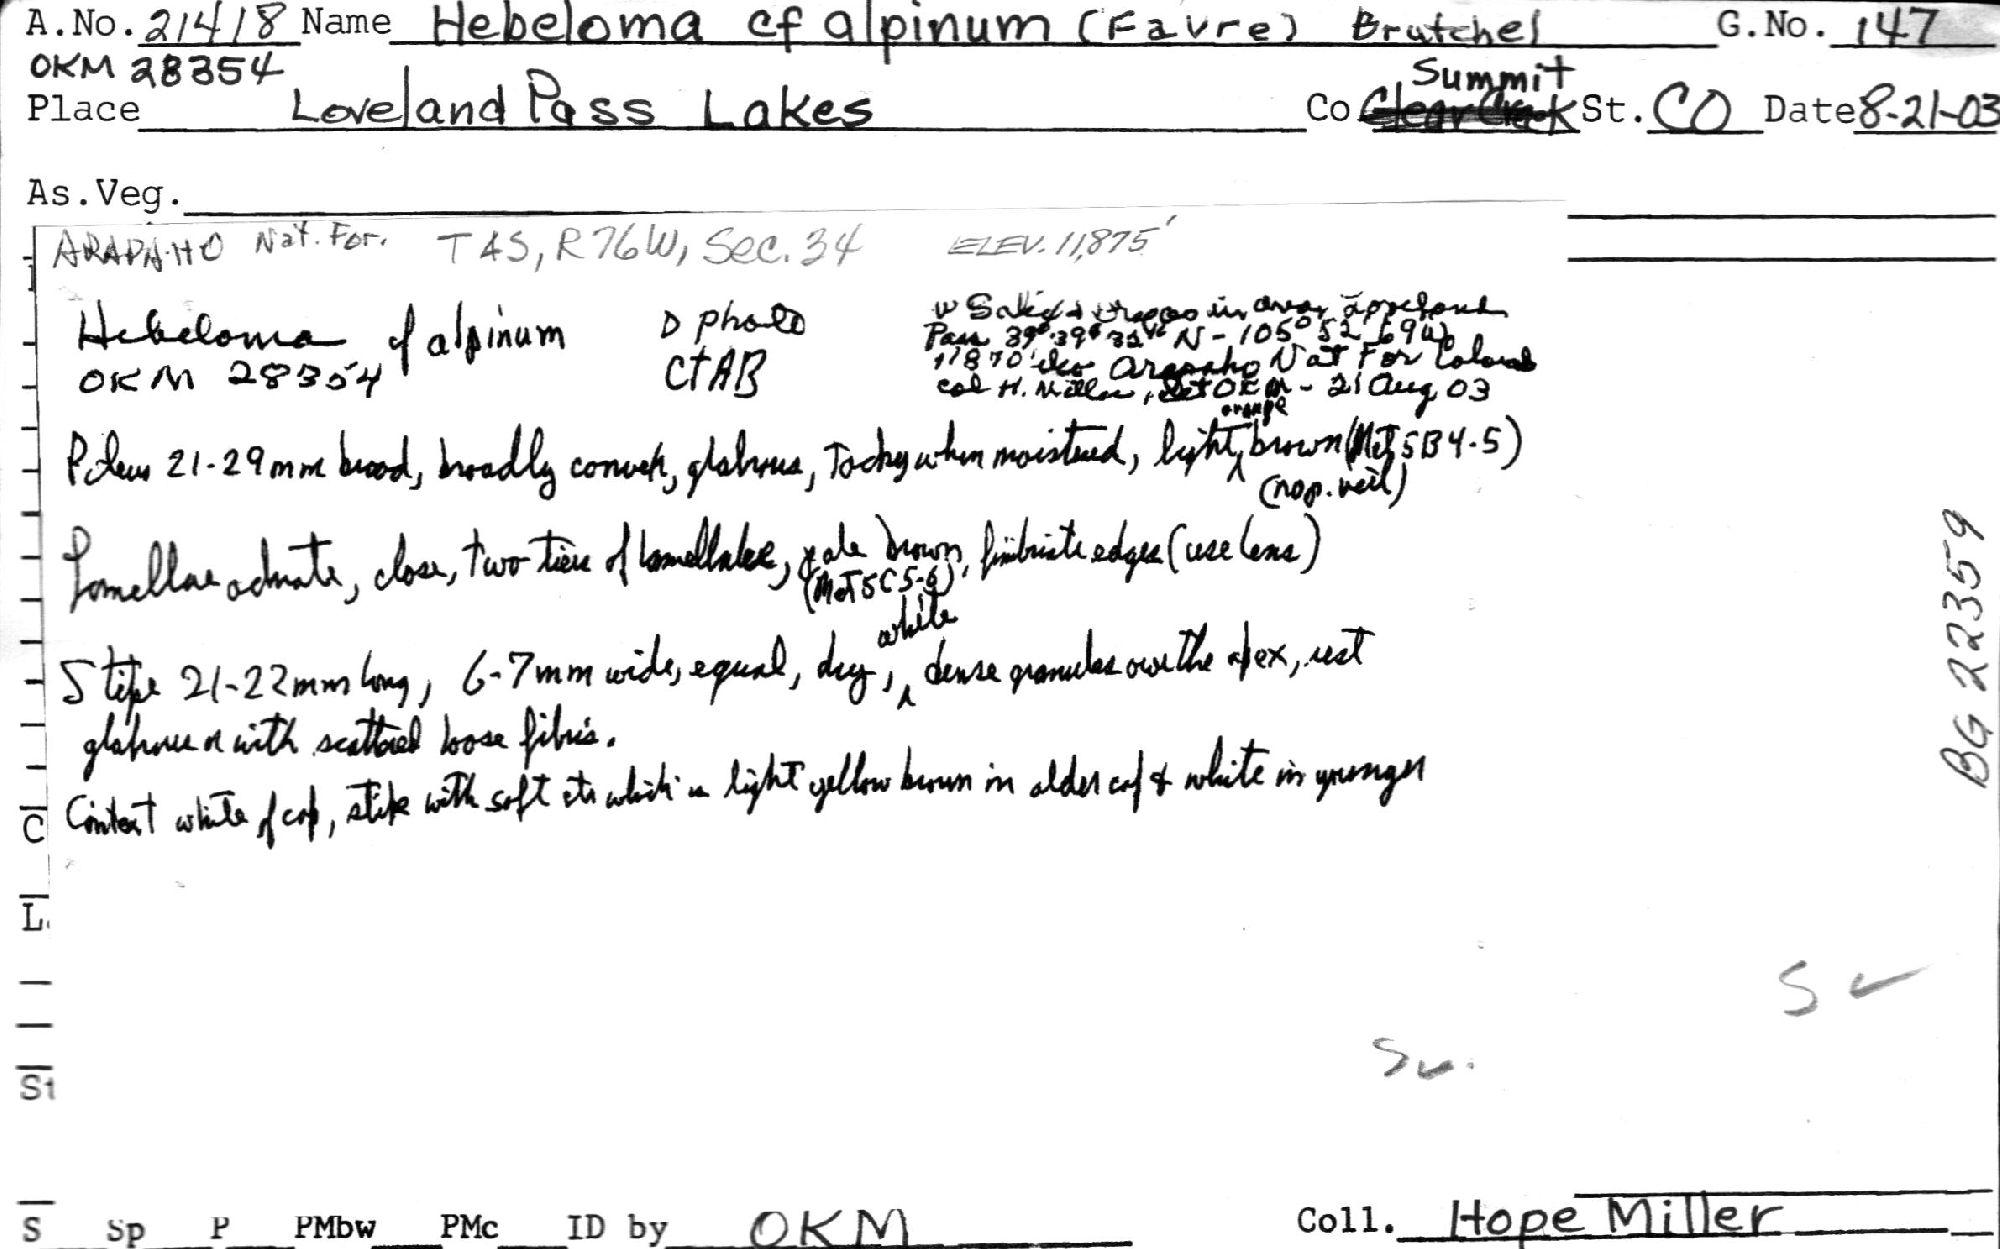 A.No. 21418 Name Hebeloma cf alpinum (Favre) Brutchel G.No. 147
OKM 28354
Summit
Place Loveland Pass Lakes Co Clear Creek St. CO Date 8-21-03
As.Veg.
ARAPAHO Nat. For. T4S, R76W, Sec. 34 ELEV. 11,875'
Hebeloma cf alpinum D photo
OKM 28354 CTAB
w Salix in area
Pass N - 105° 52
11870' Arapaho Nat For
col H. Miller, det OKM - 21 Aug 03
orange
Pileus 21-29mm broad, broadly convex, glabrous, Tacky when moistened, light ^ brown (M&J 5B4-5)
(no p. veil)
Lamellae adnate, close, two tiers of lamellulae, pale brown, fimbriate edges (use lens)
(M&J 5C5-6)
white
Stipe 21-22mm long, 6-7mm wide, equal, dry, ^ dense granules over the apex, rest
glabrous or with scattered loose fibris.
Context white of cap, stipe with soft ctr which is light yellow brown in older cap & white in younger
BG 22359
C
L
S
S
St
S Sp P PMbw PMc ID by OKM Coll. Hope Miller